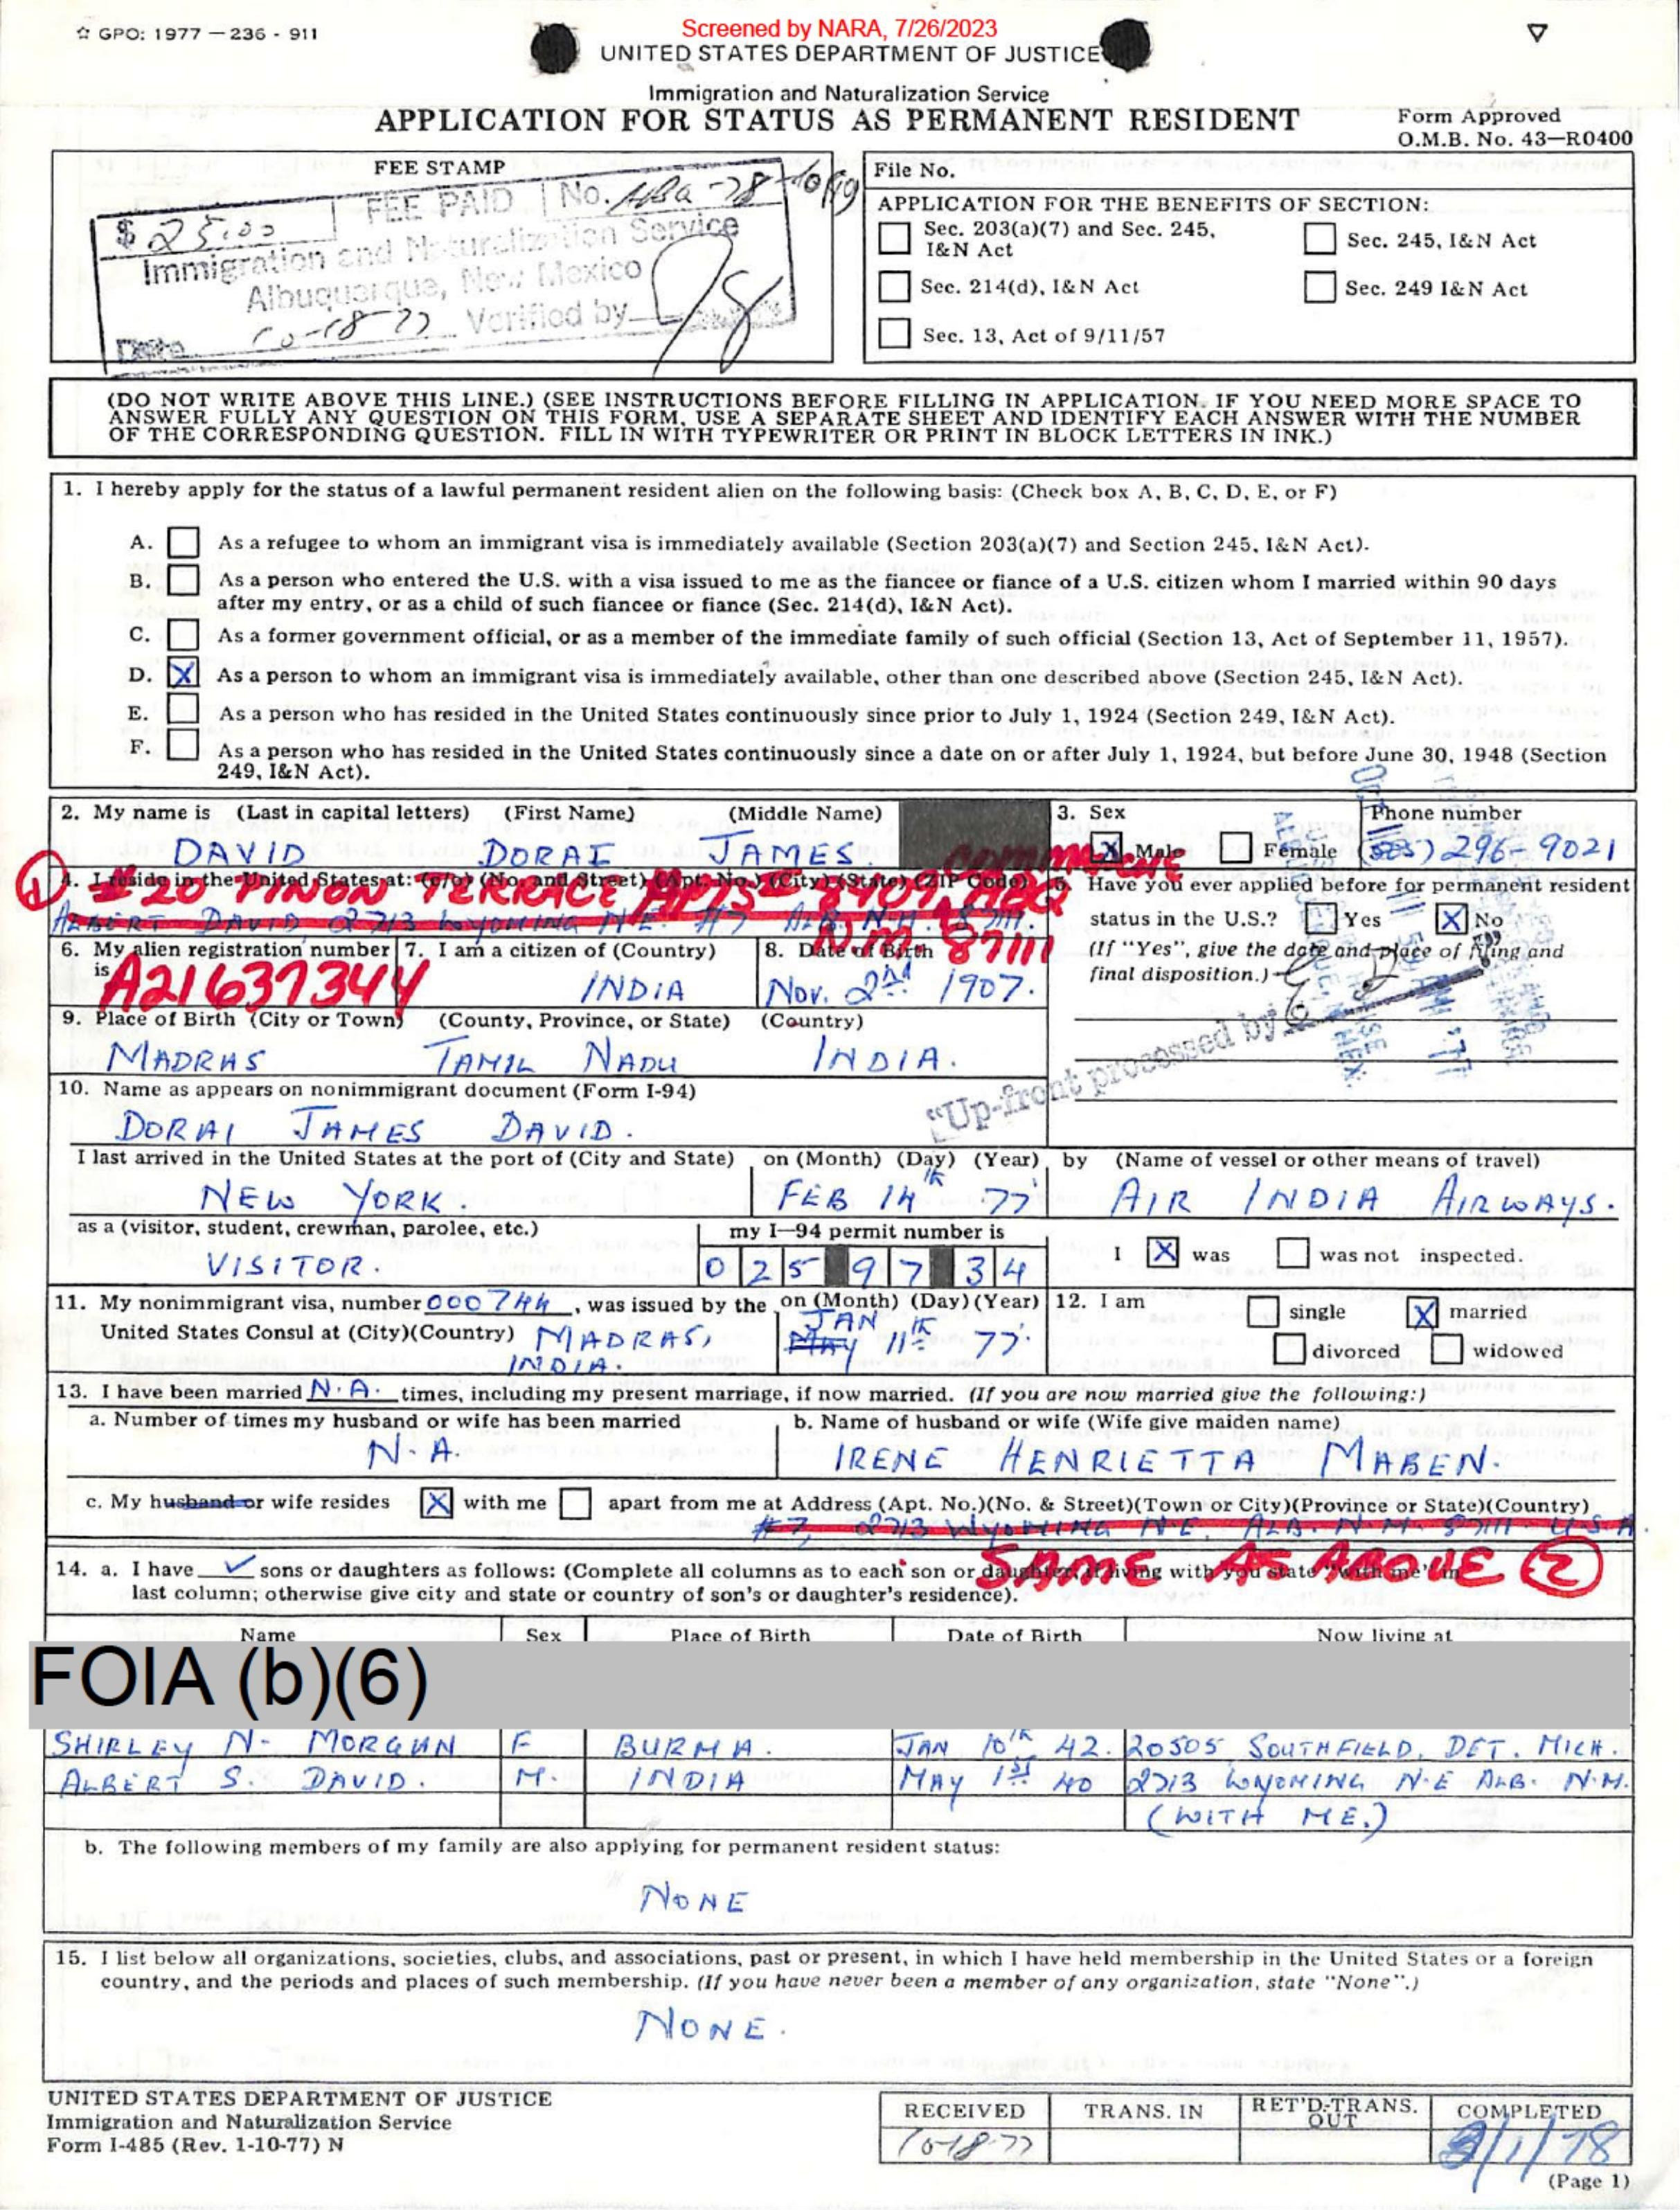 ☆ GPO: 1977 — 236 - 911
Screened by NARA, 7/26/2023
UNITED STATES DEPARTMENT OF JUSTICE
Immigration and Naturalization Service
APPLICATION FOR STATUS AS PERMANENT RESIDENT
Form Approved
O.M.B. No. 43—R0400
FEE STAMP
$ 25.00 FEE PAID No.
Immigration and Naturalization Service
Albuquerque, New Mexico
Date 10-18-77 Verified by
File No.
APPLICATION FOR THE BENEFITS OF SECTION:
Sec. 203(a)(7) and Sec. 245, I&N Act
Sec. 245, I&N Act
Sec. 214(d), I&N Act
Sec. 249 I&N Act
Sec. 13, Act of 9/11/57
(DO NOT WRITE ABOVE THIS LINE.) (SEE INSTRUCTIONS BEFORE FILLING IN APPLICATION. IF YOU NEED MORE SPACE TO
ANSWER FULLY ANY QUESTION ON THIS FORM, USE A SEPARATE SHEET AND IDENTIFY EACH ANSWER WITH THE NUMBER
OF THE CORRESPONDING QUESTION. FILL IN WITH TYPEWRITER OR PRINT IN BLOCK LETTERS IN INK.)
1. I hereby apply for the status of a lawful permanent resident alien on the following basis: (Check box A, B, C, D, E, or F)
A. As a refugee to whom an immigrant visa is immediately available (Section 203(a)(7) and Section 245, I&N Act).
B. As a person who entered the U.S. with a visa issued to me as the fiancee or fiance of a U.S. citizen whom I married within 90 days
after my entry, or as a child of such fiancee or fiance (Sec. 214(d), I&N Act).
C. As a former government official, or as a member of the immediate family of such official (Section 13, Act of September 11, 1957).
D. X As a person to whom an immigrant visa is immediately available, other than one described above (Section 245, I&N Act).
E. As a person who has resided in the United States continuously since prior to July 1, 1924 (Section 249, I&N Act).
F. As a person who has resided in the United States continuously since a date on or after July 1, 1924, but before June 30, 1948 (Section
249, I&N Act).
2. My name is (Last in capital letters) (First Name) (Middle Name)
DAVID DORAI JAMES.
3. Sex
X Male Female
Phone number
(505) 296-9021
4. I reside in the United States at: (c/o) (No. and Street) (Apt. No.) (City) (State) (ZIP Code)
1 #20 PINON TERRACE APTS
ALBERT DAVID 2713 WYOMING N.E. #7 ALB. N.M. 87111.
N.M. 87111
5. Have you ever applied before for permanent resident
status in the U.S.? Yes X No
(If "Yes", give the date and place of filing and
final disposition.)
6. My alien registration number is
A21637344
7. I am a citizen of (Country)
INDIA
8. Date of Birth
Nov. 2nd 1907.
9. Place of Birth (City or Town) (County, Province, or State) (Country)
MADRAS TAMIL NADU INDIA.
"Up-front processed by
10. Name as appears on nonimmigrant document (Form I-94)
DORAI JAMES DAVID.
I last arrived in the United States at the port of (City and State) on (Month) (Day) (Year) by (Name of vessel or other means of travel)
NEW YORK. FEB 14th 77 AIR INDIA AIRWAYS.
as a (visitor, student, crewman, parolee, etc.)
VISITOR.
my I—94 permit number is
025 97 34
I X was was not inspected.
11. My nonimmigrant visa, number 000744, was issued by the
United States Consul at (City)(Country) MADRAS,
INDIA.
on (Month) (Day) (Year)
JAN
MAY 11th 77.
12. I am single X married
divorced widowed
13. I have been married N.A. times, including my present marriage, if now married. (If you are now married give the following:)
a. Number of times my husband or wife has been married
N.A.
b. Name of husband or wife (Wife give maiden name)
IRENE HENRIETTA MABEN.
c. My husband or wife resides X with me apart from me at Address (Apt. No.)(No. & Street)(Town or City)(Province or State)(Country)
#7, 2713 WYOMING N.E. ALB. N.M. 87111 U.S.A
SAME AS ABOVE 2
14. a. I have ✓ sons or daughters as follows: (Complete all columns as to each son or daughter, if living with you state "with me" in
last column; otherwise give city and state or country of son's or daughter's residence).
Name Sex Place of Birth Date of Birth Now living at
FOIA (b)(6)
SHIRLEY N- MORGAN F BURMA. JAN 10th 42. 20505 SOUTHFIELD, DET. MICH.
ALBERT S. DAVID. M. INDIA MAY 1st 40 2713 WYOMING N.E ALB. N.M.
(WITH ME.)
b. The following members of my family are also applying for permanent resident status:
NONE
15. I list below all organizations, societies, clubs, and associations, past or present, in which I have held membership in the United States or a foreign
country, and the periods and places of such membership. (If you have never been a member of any organization, state "None".)
NONE.
UNITED STATES DEPARTMENT OF JUSTICE
Immigration and Naturalization Service
Form I-485 (Rev. 1-10-77) N
RECEIVED TRANS. IN RET'D-TRANS. OUT COMPLETED
10-18-77
/1/78
(Page 1)